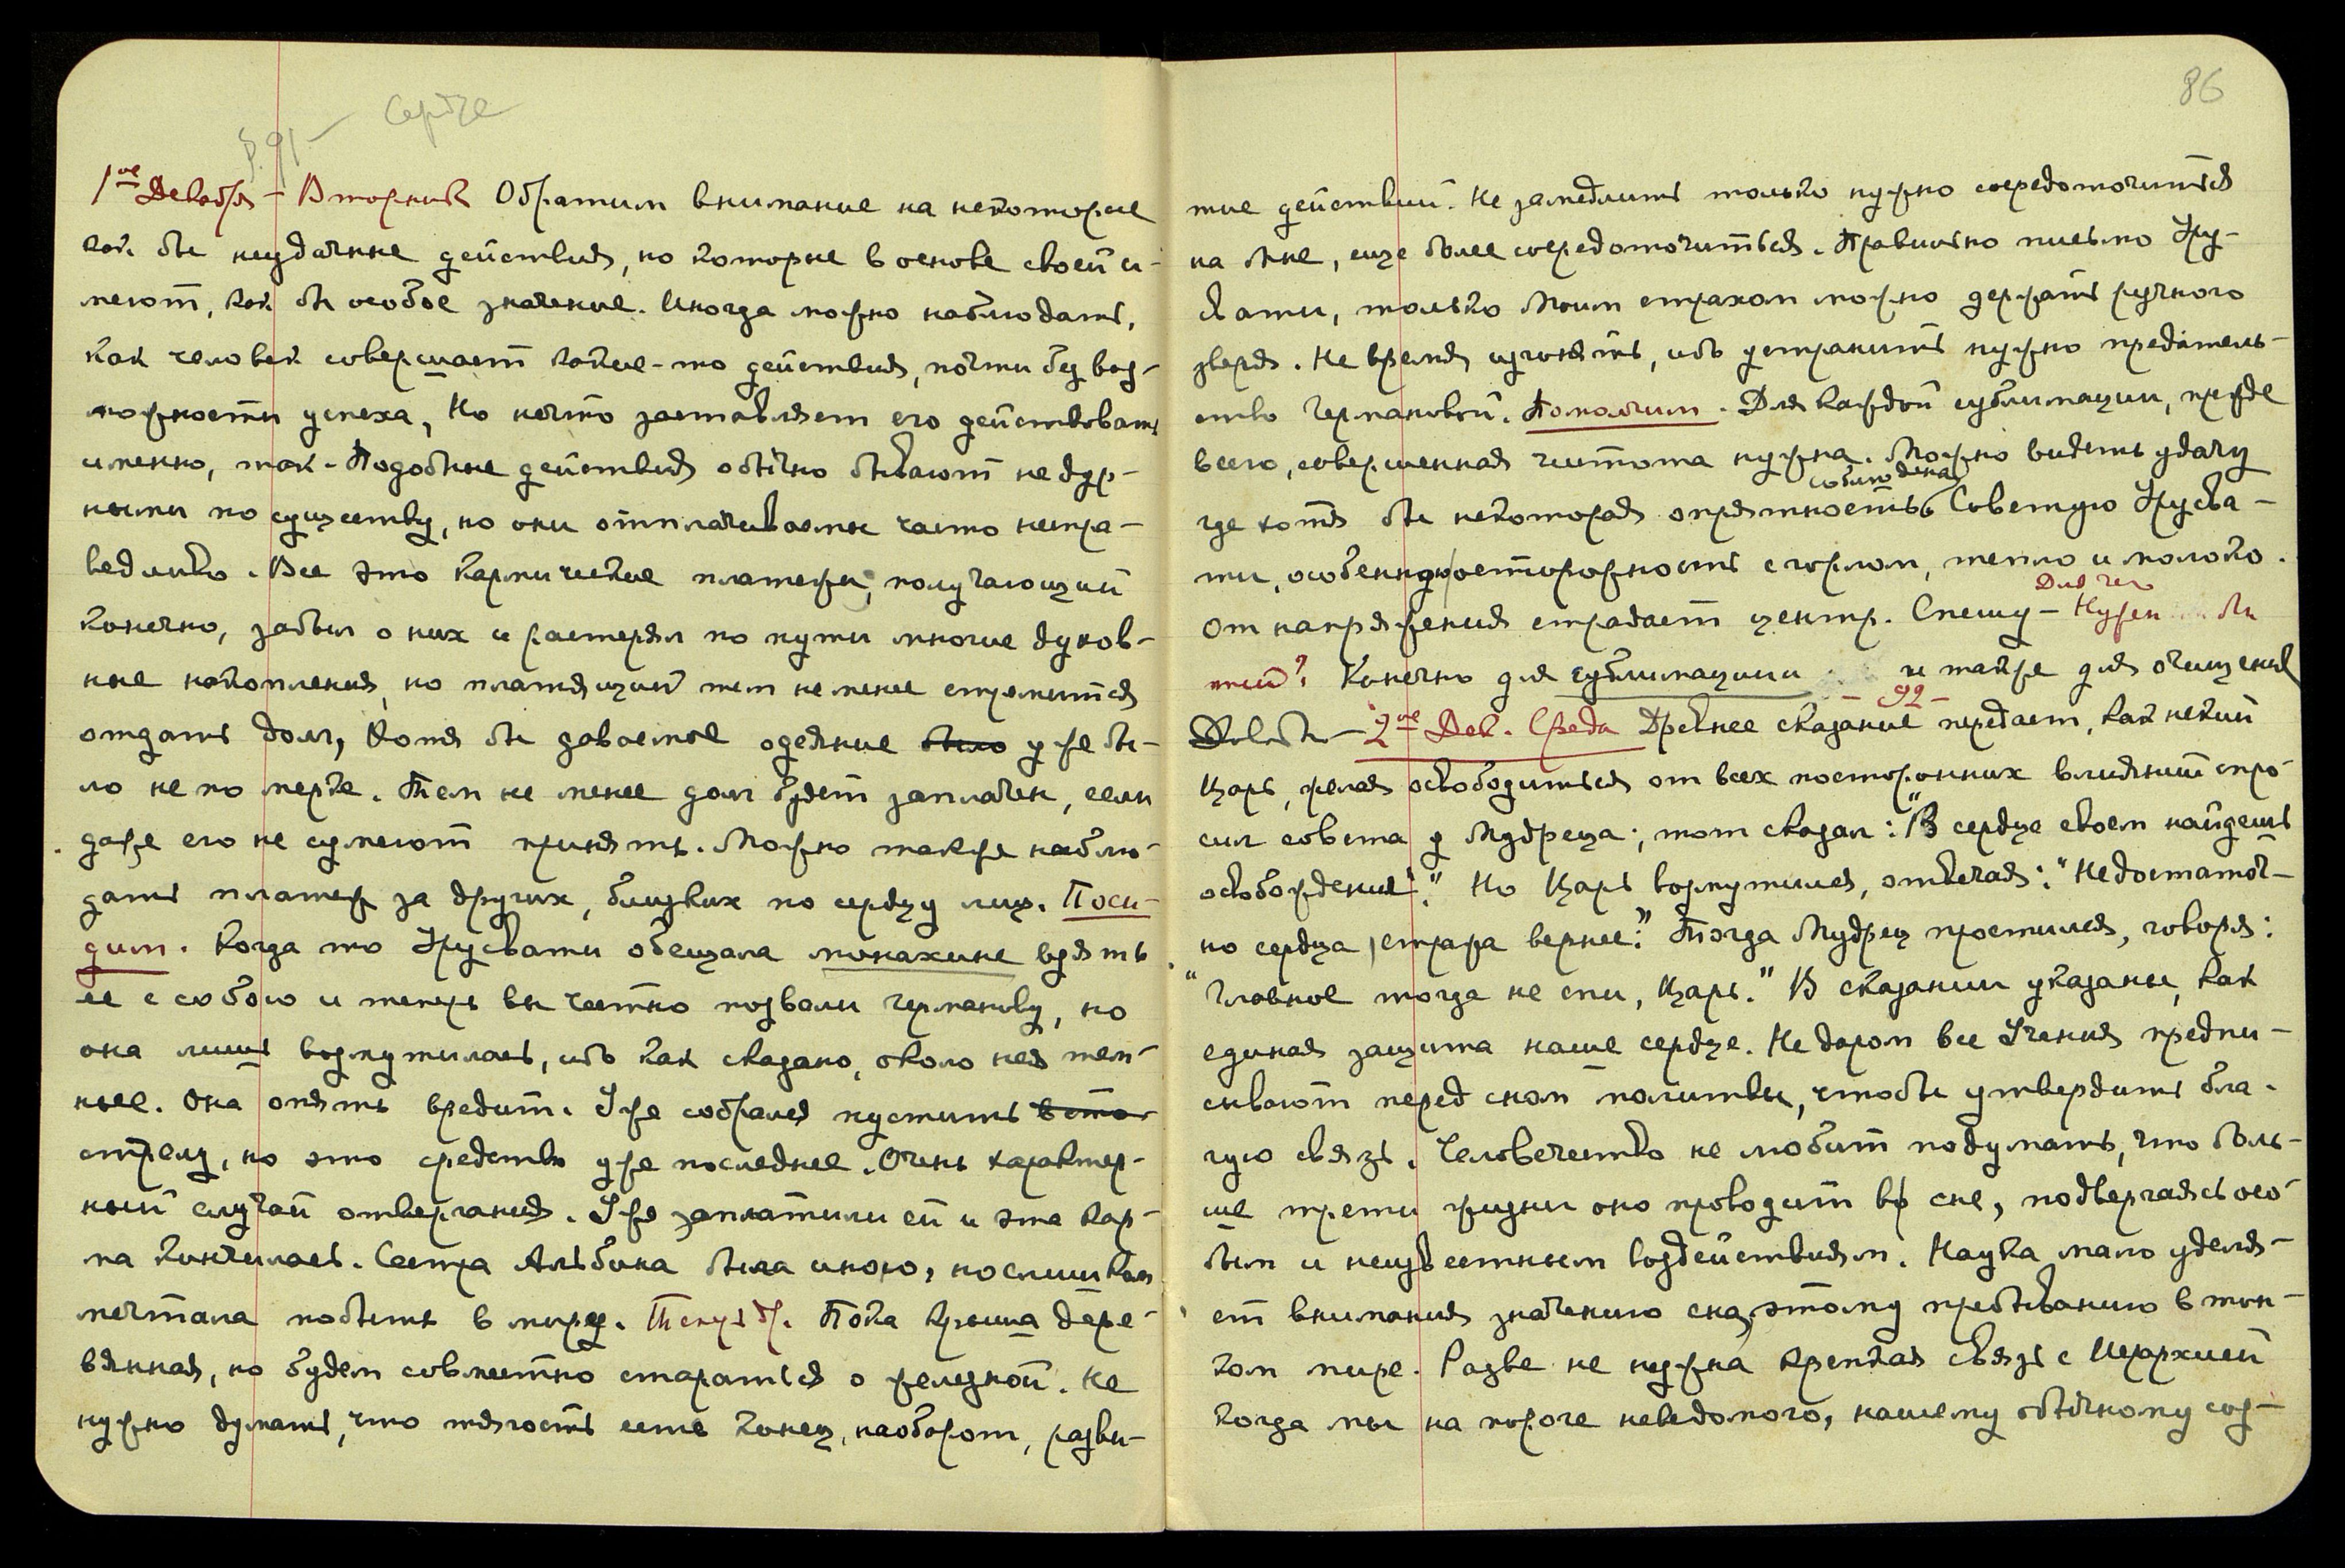 §.91 — Сердце
1ое Декабря — Вторник Обратим внимание на некоторые
как бы неудачные действия, но которые в основе своей и-
меют, как бы особое значение. Иногда можно наблюдать,
как человек совершает какие-то действия, почти без воз-
можности успеха, Но нечто заставляет его действовать
именно, так. Подобные действия обычно бывают не дур-
ными по существу, но они отплачиваемы часто неспра-
ведливо. Все это кармические платежи, получающий
конечно, забыл о них и растерял по пути многие духов-
ные накопления, но платящий тем не менее стремится
отдать долг, Хотя бы даваемое одеяние было уже бы-
ло не по мерке. Тем не менее долг будет заплачен, если
даже его не сумеют принять. Можно также наблю-
дать платеж за других, близких по сердцу лиц. Поси-
дим. Когда то Урусвати обещала монахине взять
ее с собою и теперь вы честно позвали Германову, но
она лишь возмутилась, ибо как сказано, около нея тем-
нее. Она опять вредит. Уже собрался пустить
стрелу, но это средство уже последнее. Очень характер-
ный случай отвергания. Уже заплатили ей и эта кар-
ма кончилась. Сестра Альбина была иною, но слишком
мечтала побыть в миру. Пока крыша дере-
вянная, но будем совместно стараться о железной. Не
нужно думать, что тягость есть конец, наоборот, разви-
86
тие действий. Не замедлить только нужно сосредоточиться
на Мне, еще более сосредоточиться. Правильно письмо Уру-
свати, только Моим страхом можно держать ручного
зверя. Не время изгонять, ибо устранить нужно предатель-
ство Германовой. Помолчим. Для каждой сублимации, прежде
всего, совершенная чистота нужна. Можно видеть удачу
соблюдена
где хотя бы некоторая опрятность Советую Урусва-
ти, особенную осторожность с горлом, тепло и молоко.
Для чего
От напряжения страдает центр. Спешу — Нужен бы
Конечно для сублимации и также для очищения
— 92 —
Довольно — 2ое Дек. Среда Древнее сказание передает, как некий
Царь, желая освободиться от всех посторонних влияний спро-
сил совета у Мудреца; тот сказал: "В сердце своем найдешь
освобождение". Но Царь возмутился, отвечая: "Недостаточ-
но сердца, стража вернее." Тогда Мудрец простился, говоря:
"Главное тогда не спи, Царь." В сказании указаны, как
единая защита наше сердце. Не даром все Учения предпи-
сывают перед сном молитвы, чтобы утвердить бла-
гую связь. Человечество не любит подумать, что боль-
ше трети жизни оно проводит во сне, подвергаясь осо-
бым и неизвестным воздействиям. Наука мало уделя-
ет внимания значению сна, этому пребыванию в тон-
ком мире. Разве не нужна крепкая связь с Иерархией
когда мы на пороге неведомого, нашему обычному соз-